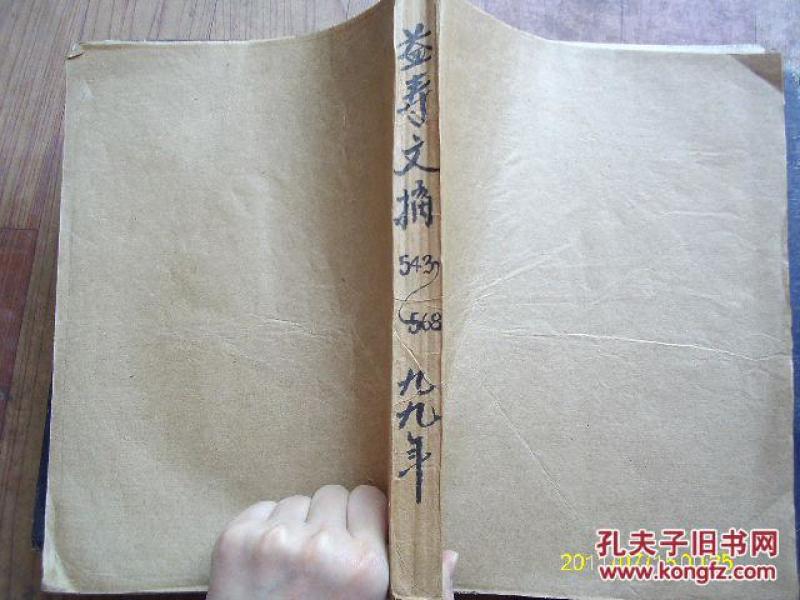 益寿文摘
543
568
九九年
孔夫子旧书网
www.kongfz.com